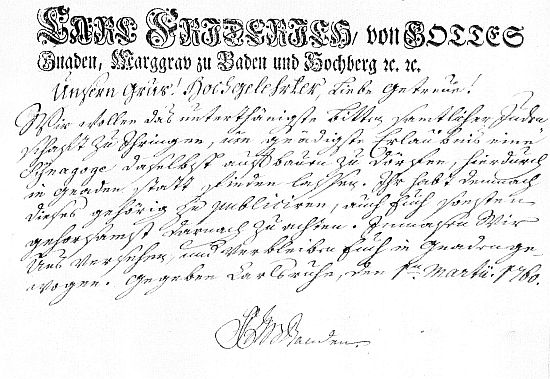 CARL FRIDERICH, von GOTTES
Gnaden, Marggrav zu Baden und Hochberg ꝛc. ꝛc.
Unsern Grus! Hochgelehrter, Liebe Getreue!
Wir wollen das unterthänigste bitten samtlicher Juden
schafft zu Ihringen, um gnädigste Erlaubnis eine
Synagoge daselbst auffbauen zu dörffen, hierdurch
in gnaden statt finden lassen. Ihr habt demnach
dieses gehörig zu publiciren, auch Euch sonsten
gehorsamst darnach zu achten. Inmassen Wir
Uns versehen, und verbleiben Euch in Gnaden ge-
wogen. Gegeben Carlsruhe, den 1ten Martii. 1760.